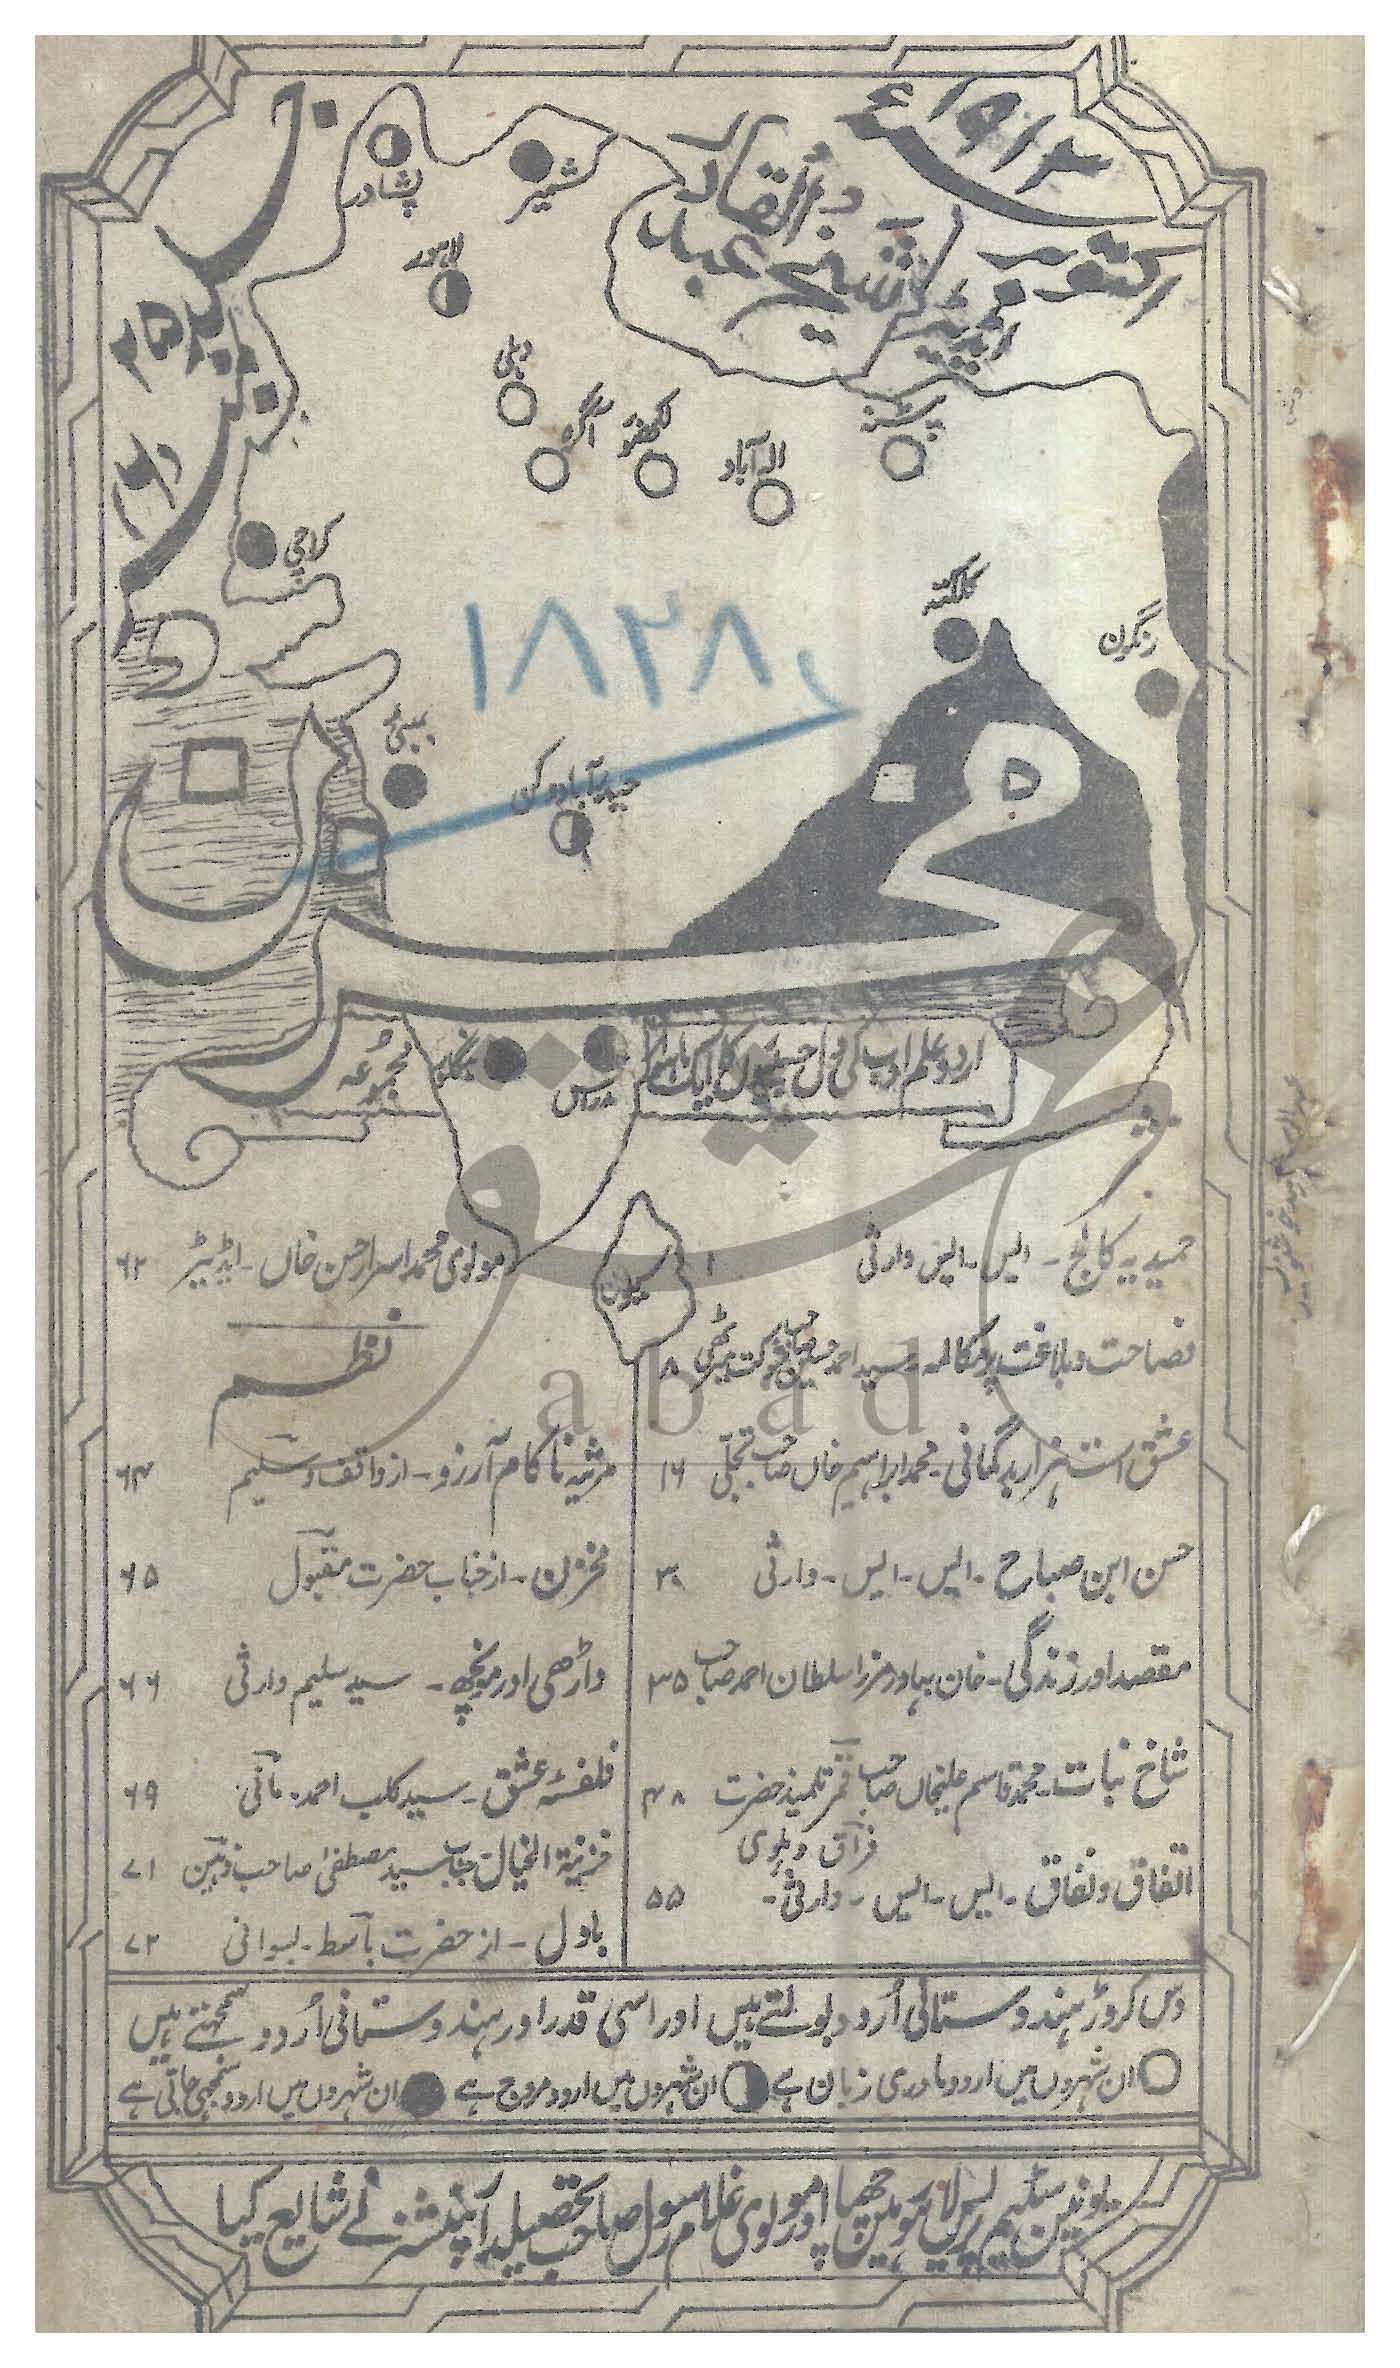 اکتوبر
ایڈیٹر
شیخ عبدالقادر
نمبر
جلد ۲۵
پشاور
کشمیر
لاہور
دہلی
آگرہ
لکھنؤ
الہ آباد
پٹنہ
کراچی
کلکتہ
رنگون
۱۸۲۸
بمبئی
حیدرآباد دکن
مخزن
اردو علم ادب کی
مجموعہ
بنگلور
مدراس
سیلون
حمیدیہ کالج - ایس - ایس وارثی ۱
فصاحت و بلاغت پر مکالمہ - سید احمد حسین صاحب شوکت میرٹھی ۸
عشق استہزار بدگمانی - محمد ابراہیم خاں صاحب تجلی ۱۶
حسن ابن صباح - ایس - ایس - وارثی
مقصد اور زندگی - خان بہادر مرزا سلطان احمد صاحب ۳۵
شاخ نبات - محمد قاسم علیخاں صاحب قمر تلمیذ حضرت ۴۸
فراق دہلوی
اتفاق و نفاق - ایس - ایس - وارثی - ۵۵
مولوی محمد اسرار حسن خاں - ایڈیٹر ۶۲
نظم
مرثیہ ناکام آرزو - از واقف و سلیم ۶۴
مخزن - از جناب حضرت مقبول ۶۵
داڑھی اور مونچھ - سید سلیم وارثی ۶۶
فلسفۂ عشق - سید کلب احمد - مانی ۶۹
خزینۃ الخیال جناب سید مصطفیٰ صاحب ذہین ۷۱
بادل - از حضرت باسط - بسوانی ۷۲
دس کروڑ ہندوستانی اُردو بولتے ہیں اور اسی قدر اور ہندوستانی اُردو سمجھتے ہیں
ان شہروں میں اردو مادری زبان ہے ان شہروں میں اردو مروج ہے ان شہروں میں اردو سمجھی جاتی ہے
یونین سٹیم پریس لاہور میں چھپا اور مولوی غلام رسول صاحب تحصیلدار پنشنر نے شایع کیا
abad